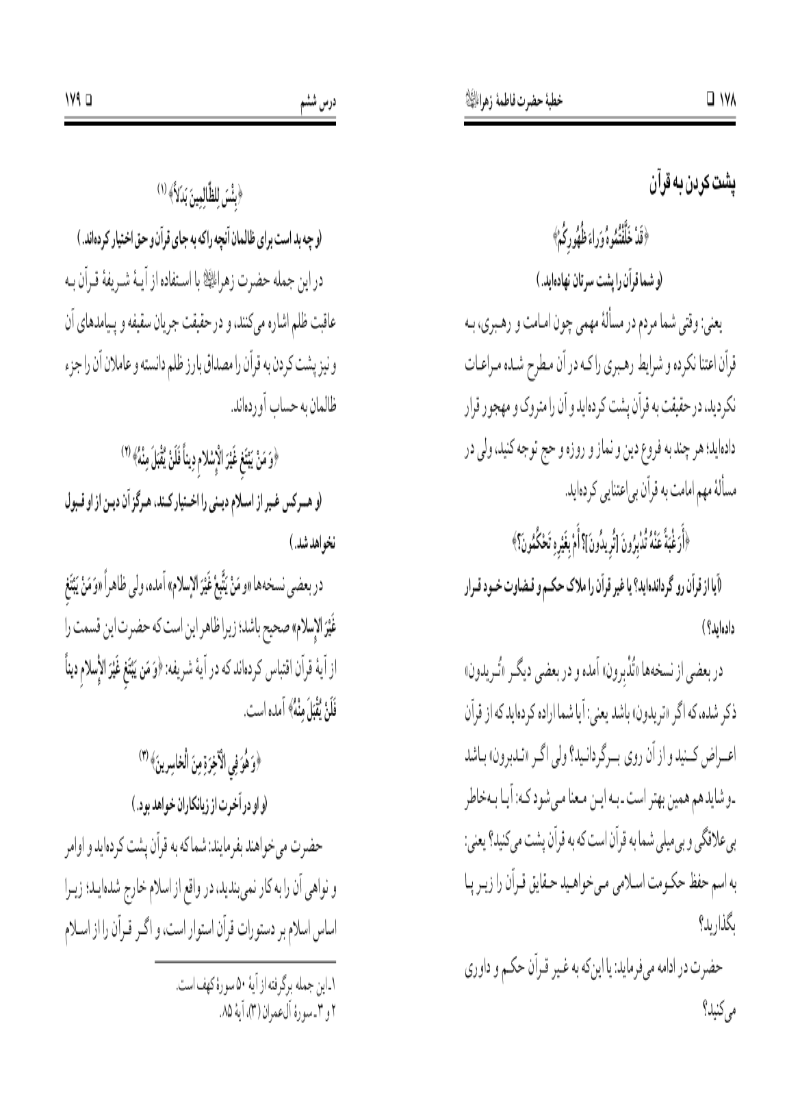 ۱۷۸ ❑ خطبهٔ حضرت فاطمهٔ زهرا
پشت کردن به قرآن
﴿قَدْ خَلَّفْتُمُوهُ وَراءَ ظُهُورِكُمْ﴾
(و شما قرآن را پشت سرتان نهاده‌اید.)
یعنی: وقتی شما مردم در مسألهٔ مهمی چون امـامت و رهبـری، بـه
قرآن اعتنا نکرده و شرایط رهبـری را کـه در آن مـطرح شـده مـراعـات
نکردید، در حقیقت به قرآن پشت کرده‌اید و آن را متروک و مهجور قرار
داده‌اید؛ هر چند به فروع دین و نماز و روزه و حج توجه کنید، ولی در
مسألهٔ مهم امامت به قرآن بی‌اعتنایی کرده‌اید.
﴿أَرَغْبَةً عَنْهُ تُدْبِرُونَ [تُرِيدُونَ]؟ أَمْ بِغَيْرِهِ تَحْكُمُونَ؟﴾
(آیا از قرآن رو گردانده‌اید؟ یا غیر قرآن را ملاک حکـم و قـضاوت خـود قـرار
داده‌اید؟)
در بعضی از نسخه‌ها «تُدْبِرون» آمده و در بعضی دیگـر «تُـریدون»
ذکر شده، که اگر «تریدون» باشد یعنی: آیا شما اراده کرده‌اید که از قرآن
اعـراض کـنید و از آن روی بـرگردانـید؟ ولی اگـر «تـدبرون» بـاشد
ـ و شاید هم همین بهتر است ـ بـه ایـن مـعنا مـی‌شود کـه: آیـا بـه‌خاطر
بی‌علاقگی و بی‌میلی شما به قرآن است که به قرآن پشت می‌کنید؟ یعنی:
به اسم حفظ حکـومت اسـلامی مـی‌خواهـید حـقایق قـرآن را زیـر پـا
بگذارید؟
حضرت در ادامه می‌فرماید: یا این‌که به غیـر قـرآن حکـم و داوری
می‌کنید؟
درس ششم ❑ ۱۷۹
﴿بِئْسَ لِلظّالِمِينَ بَدَلاً﴾ (۱)
(و چه بد است برای ظالمان آنچه را که به جای قرآن و حق اختیار کرده‌اند.)
در این جمله حضرت زهرا با استفاده از آیـهٔ شـریفهٔ قـرآن بـه
عاقبت ظلم اشاره می‌کنند، و در حقیقت جریان سقیفه و پیـامدهای آن
و نیز پشت کردن به قرآن را مصداق بارز ظلم دانسته و عاملان آن را جزء
ظالمان به حساب آورده‌اند.
﴿وَ مَنْ يَبْتَغِ غَيْرَ الْإِسْلامِ دِيناً فَلَنْ يُقْبَلَ مِنْهُ﴾ (۲)
(و هــرکس غـیر از اسـلام دیـنی را اخـتیار کـند، هـرگز آن دیـن از او قـبول
نخواهد شد.)
در بعضی نسخه‌ها «و مَنْ يَتَّبِعْ غَيْرَ الإسلام» آمده، ولی ظاهراً «وَ مَنْ يَبْتَغِ
غَيْرَ الإسلام» صحیح باشد؛ زیرا ظاهر این است که حضرت این قسمت را
از آیهٔ قرآن اقتباس کرده‌اند که در آیهٔ شریفه: ﴿وَ مَن يَبْتَغِ غَيْرَ الْإسلامِ ديناً
فَلَنْ يُقْبَلَ مِنْهُ﴾ آمده است.
﴿وَ هُوَ فِي الْآخِرَةِ مِنَ الْخاسِرِينَ﴾ (۳)
(و او در آخرت از زیانکاران خواهد بود.)
حضرت می‌خواهند بفرمایند: شما که به قرآن پشت کرده‌اید و اوامر
و نواهی آن را به کار نمی‌بندید، در واقع از اسلام خارج شده‌ایـد؛ زیـرا
اساس اسلام بر دستورات قرآن استوار است، و اگـر قـرآن را از اسـلام
۱ـ این جمله برگرفته از آیهٔ ۵۰ سورهٔ کهف است.
۲ و ۳ ـ سورهٔ آل‌عمران (۳)، آیهٔ ۸۵.